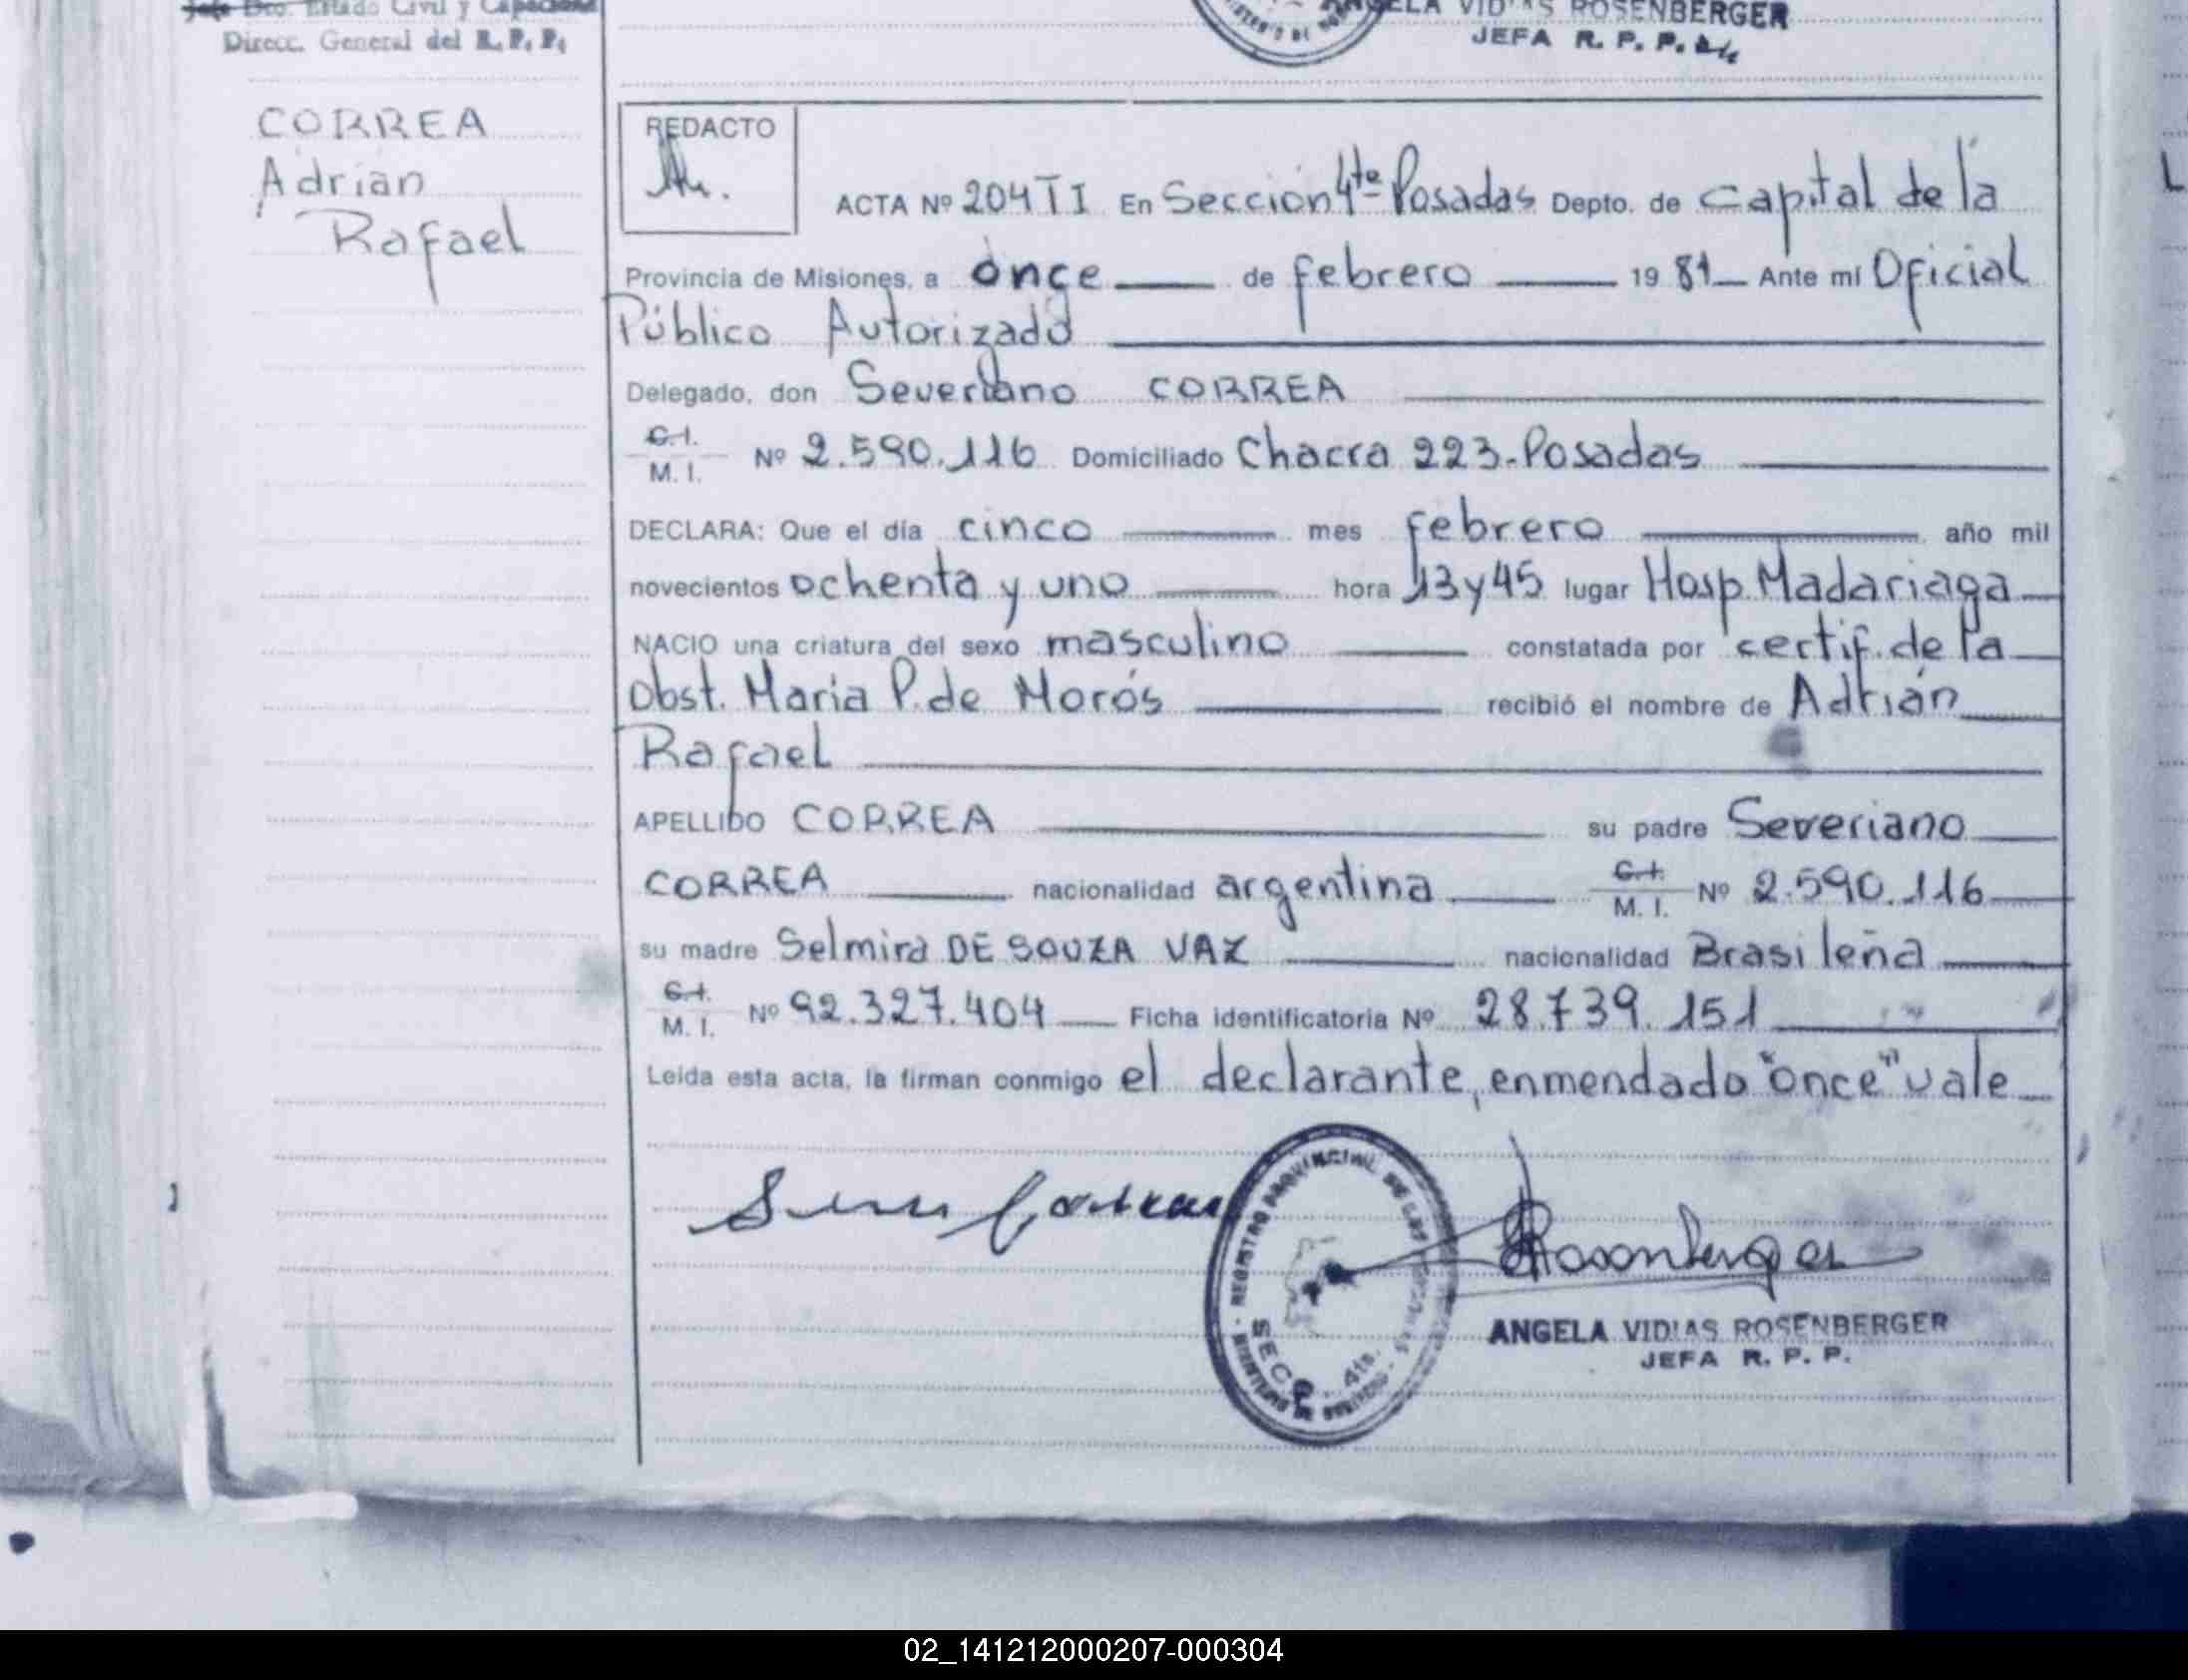 Jefe Dto. Estado Civil y Capacidad
Direcc. General del R. P. P.
ANGELA VIDIAS ROSENBERGER
JEFA R. P. P.
CORREA
Adrián
Rafael
REDACTO
ACTA Nº 204 TI En Sección 4ta Posadas Depto. de Capital de la
Provincia de Misiones, a once de febrero 1981 Ante mí Oficial
Público Autorizado
Delegado, don Severiano CORREA
C.I. M. I. Nº 2.590.116 Domiciliado Chacra 223-Posadas
DECLARA: Que el día cinco mes febrero año mil
novecientos ochenta y uno hora 13 y 45 lugar Hosp. Madariaga
NACIO una criatura del sexo masculino constatada por certif. de la
Obst. Maria P. de Morós recibió el nombre de Adrián
Rafael
APELLIDO CORREA su padre Severiano
CORREA nacionalidad argentina C.I. M. I. Nº 2.590.116
su madre Selmira DE SOUZA VAZ nacionalidad Brasileña
C.I. M. I. Nº 92.327.404 Ficha identificatoria Nº 28.739.151
Leída esta acta, la firman conmigo el declarante, enmendado "once" vale
REGISTRO PROVINCIAL DE LAS PERSONAS
SECC. 4ta.
Rosenberger
ANGELA VIDIAS ROSENBERGER
JEFA R. P. P.
02_141212000207-000304